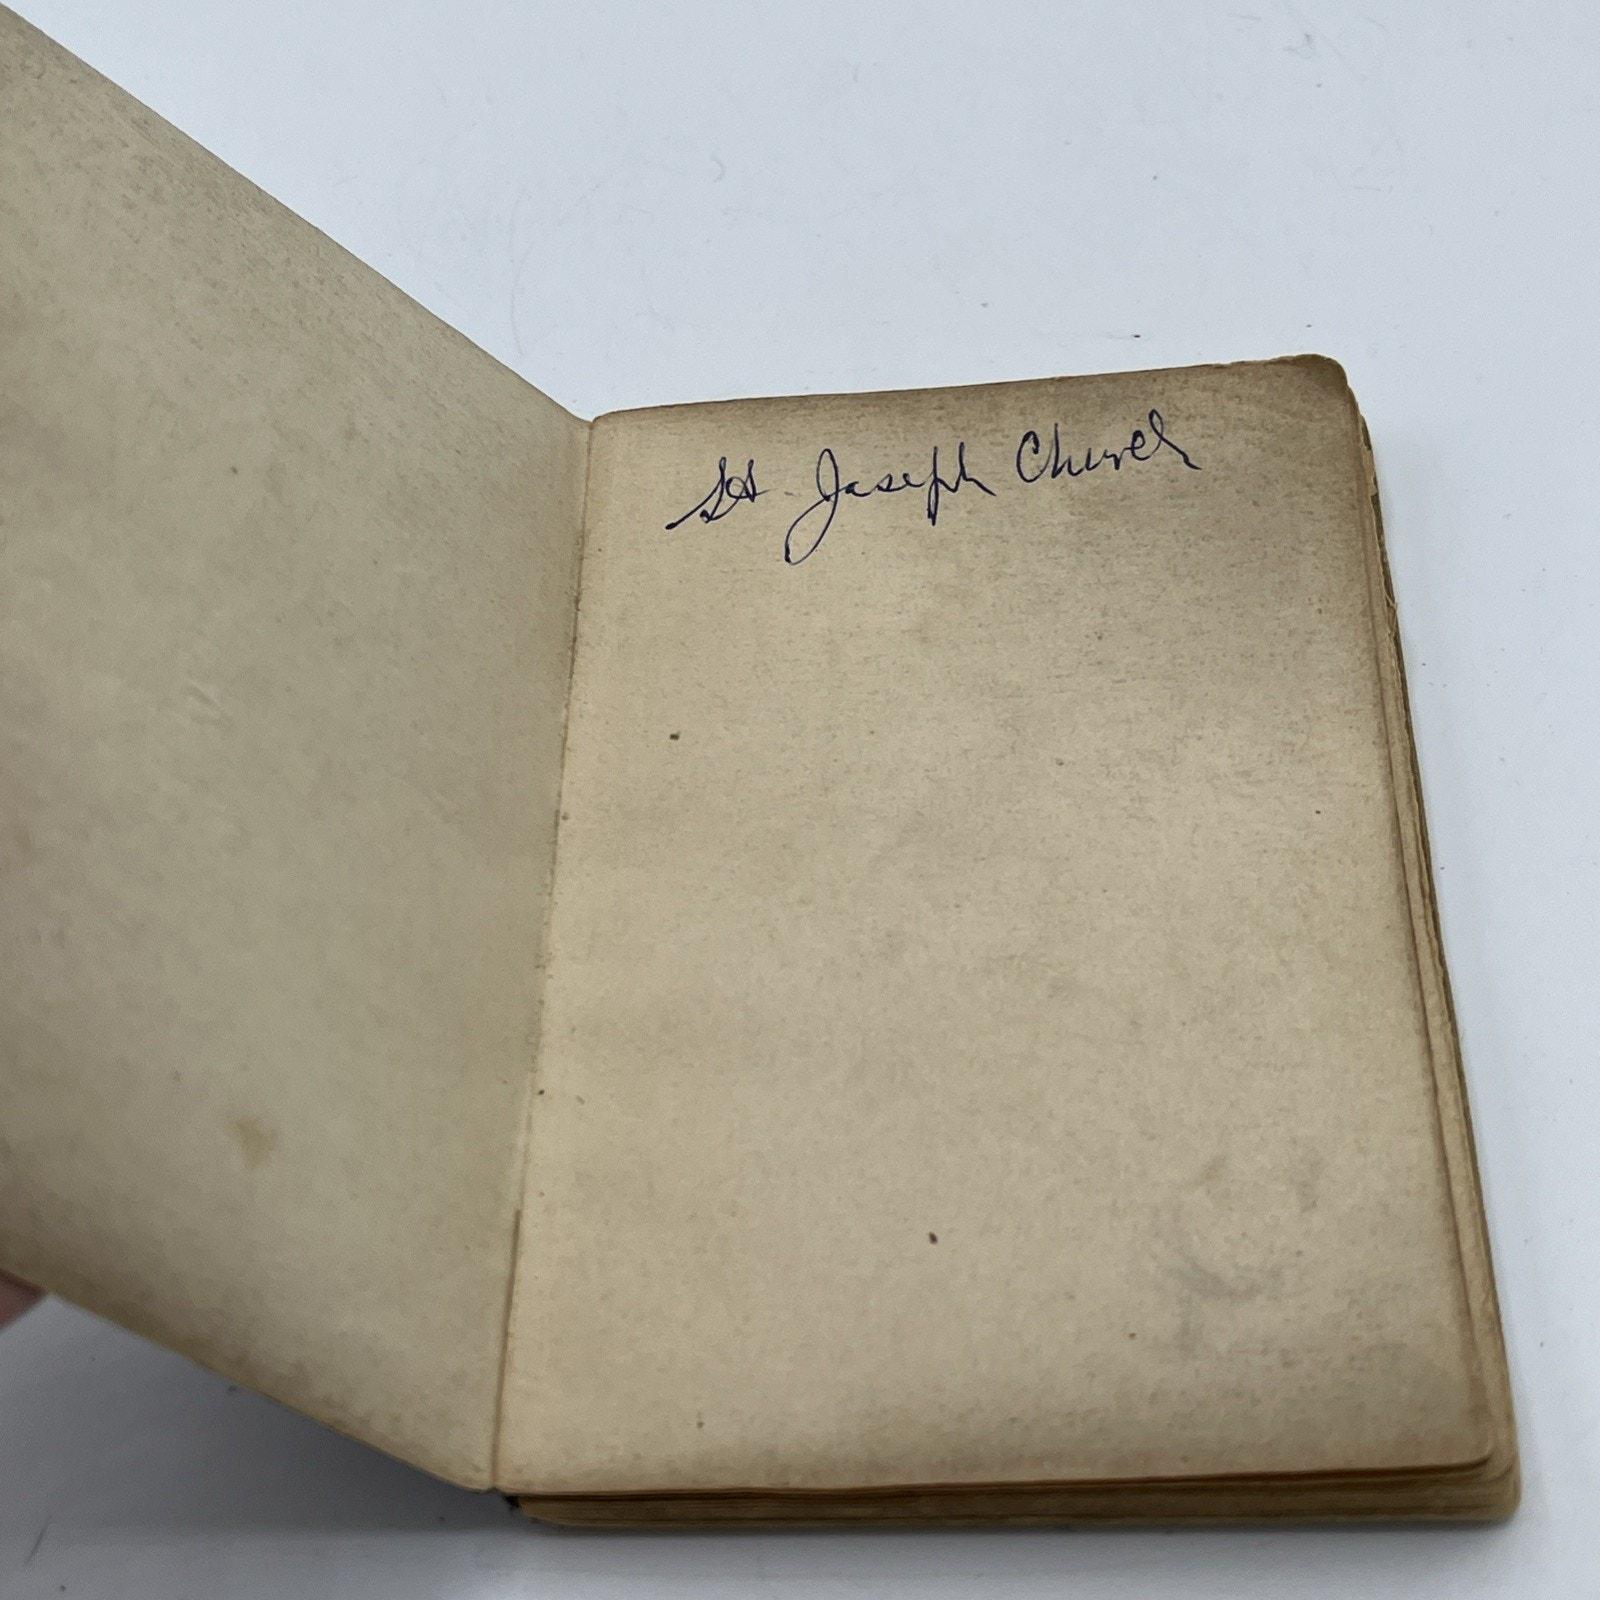 St. Joseph Church